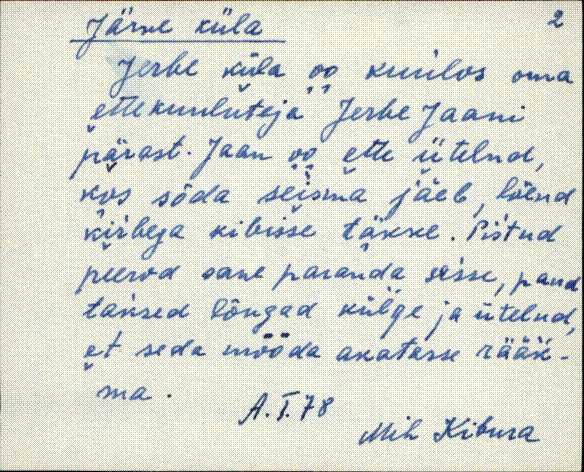 Järve küla
2
Jerbe küla oo kuulos oma
ettekuuluteja Jerbe Jaani
pärast. Jaan oo ette ütelnd,
kos sõda seisma jäeb, lõend
kirbega kibisse täkke. Pistnd
peerod sane paranda sisse, pand
taksed lõngad külge ja ütelnd,
et seda mööda akatasse rääk-
ma.
A.T.78
Mih Kibura